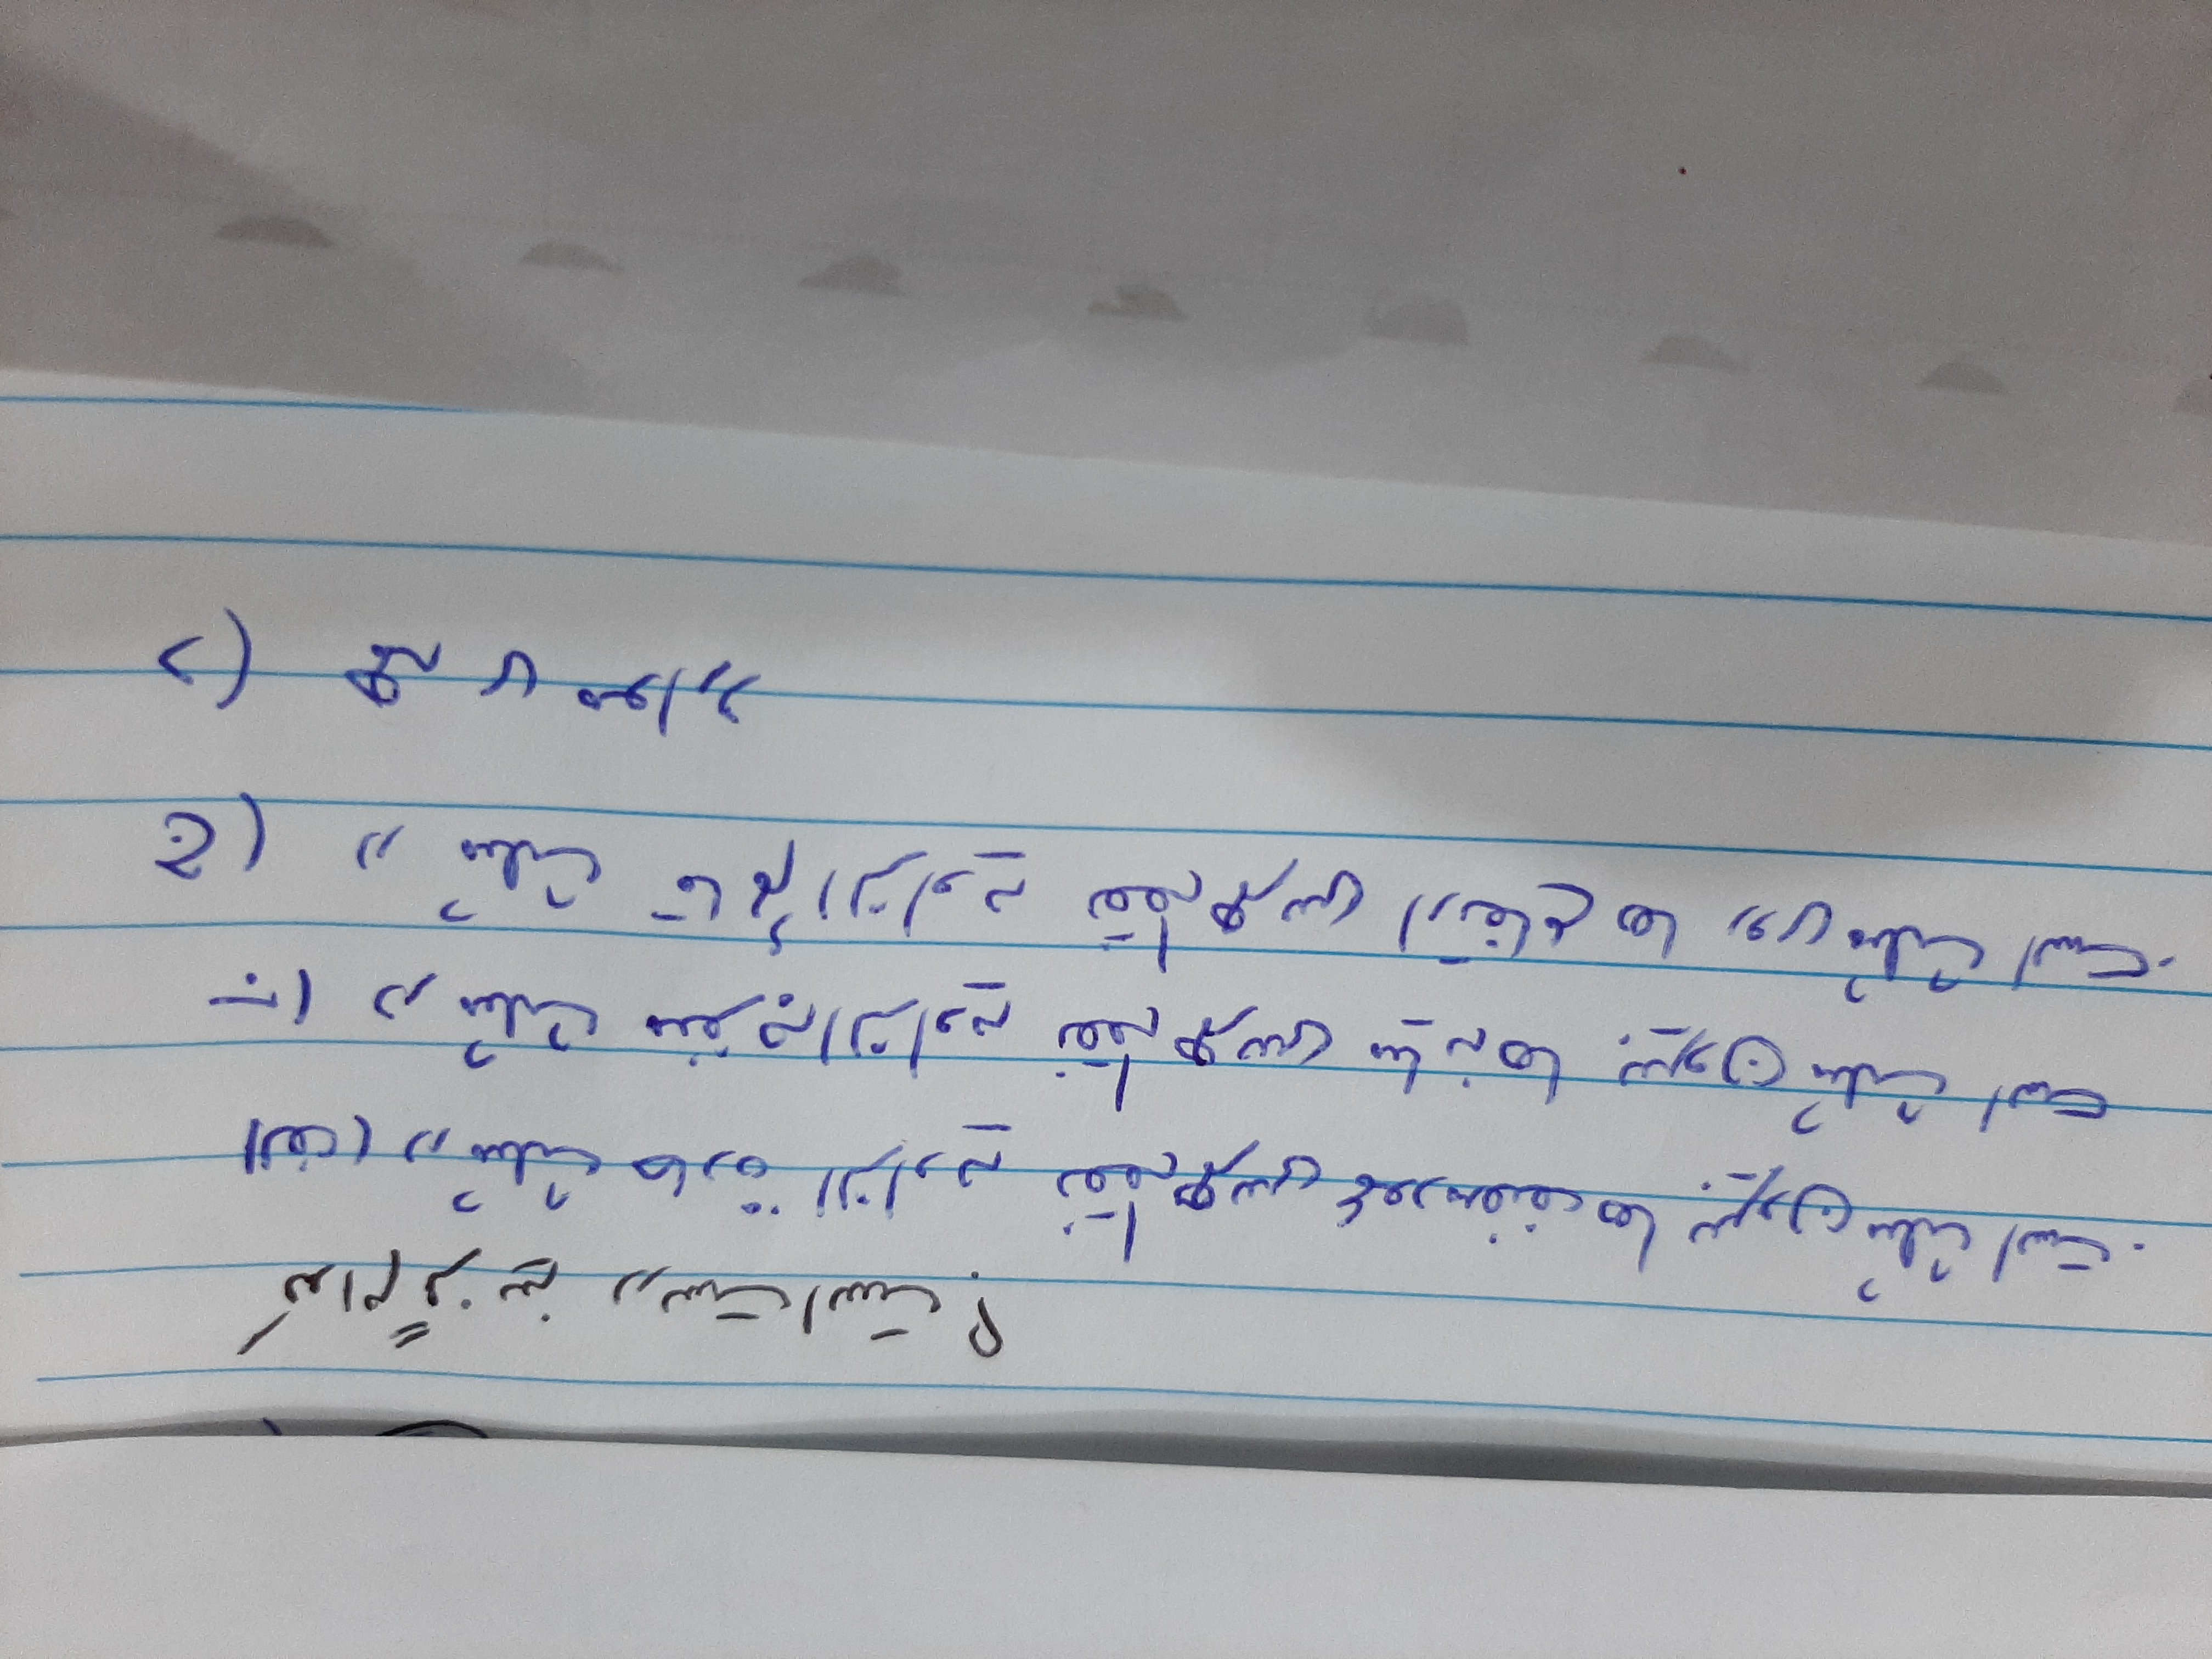 کدام گزینه درست است؟
الف) در مثلث حادة الزاویه نقطه همرسی عمودمنصف ها بیرون مثلث است.
ب) در مثلث منفرجه الزاویه نقطه همرسی میانه ها بیرون مثلث است
ج) در مثلث قائمۀ الزاویه نقطه همرسی ارتفاع ها روی مثلث است.
د) همه ی موارد